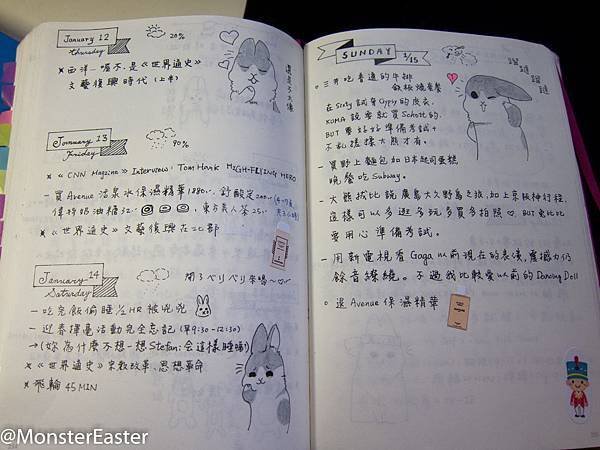 January 12
Thursday
20%
× 西洋—喔不,是《世界通史》
文藝復興時代 (上半)
January 13
Friday
90%
× 《CNN Magazine》Interview: Tom Hank HIGH-FLYING HERO
– 買 Avenue 活泉水保濕精華 1880.-
× 《世界通史》文藝復興在
January 14
Saturday
– 吃完飯偷睡 1/2 HR 被兇兇
– 迎春揮毫活動完全忘記 (早9:30 -12:30)
→ (妳為什麼不想一想 Stefan: 会這樣睡嗎!)
× 《世界通史》宗教改革、思想革命
× 飛輪 45 MIN
SUNDAY 1/15
在 Sixty 試穿 Gypsy 的皮衣,
KUMA 說要就買 Schott 的,
BUT 要好好準備考試+
不亂揉揉大熊才有。
– 買野上麵包加日本起司蛋糕
晚餐吃 Subway。
這樣可以多逛多玩多買多拍照 BUT 兔比比
要用心 準備考試。
– 用新電視看 Gaga 以前現在的表演,震撼力仍
餘音繚繞。不過我比較愛以前的 Dancing Doll
○ 退 Avenue 保濕精華
@MonsterEaster